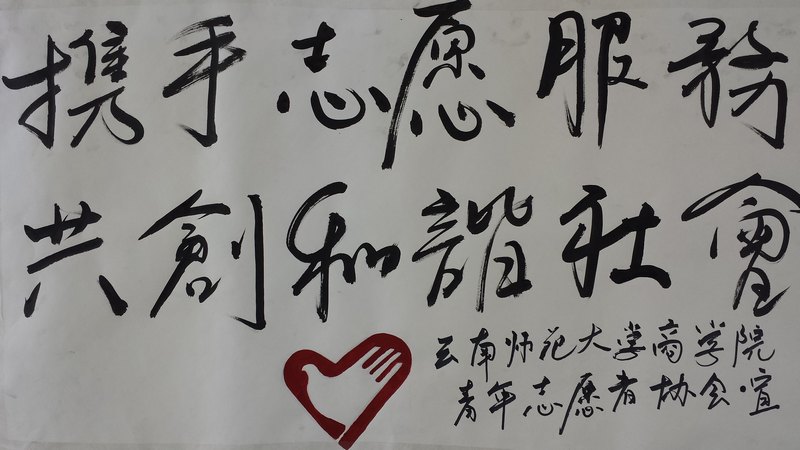 携手志愿服務
共創和諧社會
云南师范大学商学院
青年志愿者协会喧